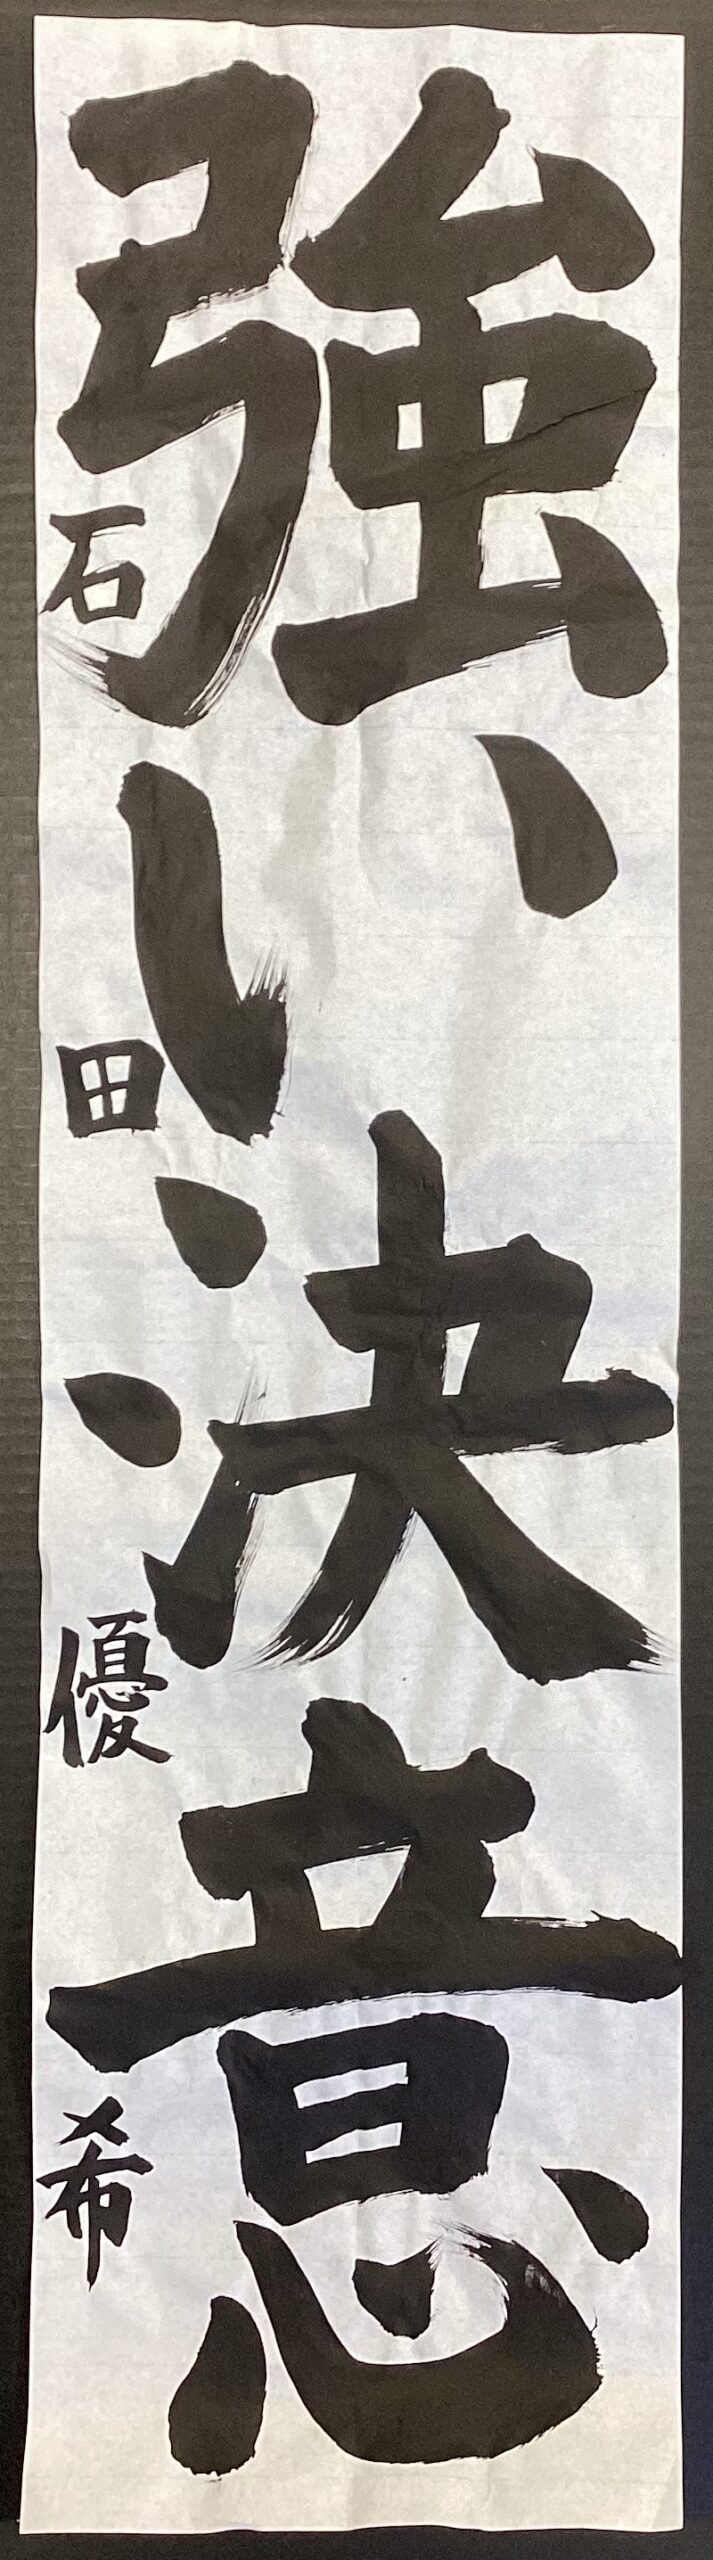 強い決意
石田優希